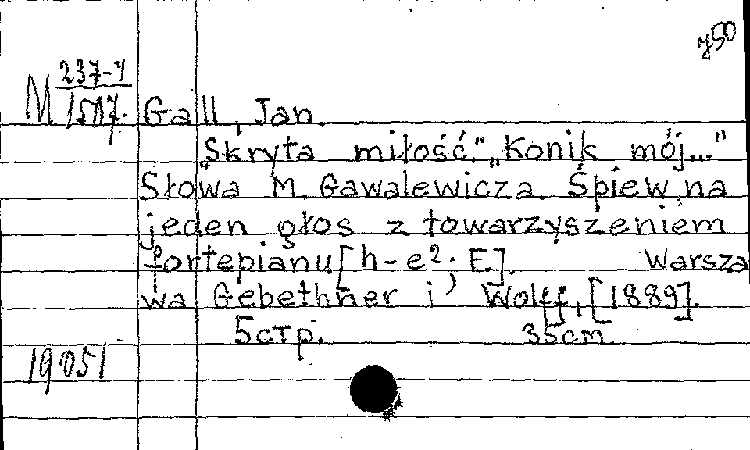 у50
M 237-4
1517. Gall, Jan.
„Skryta miłość." „Konik mój..."
Słowa M. Gawalewicza. Śpiew na
jeden głos z towarzyszeniem
fortepianu [h-e²; E]. Warsza
wa Gebethner i Wolff, [1889].
5стр. 35cm
19051